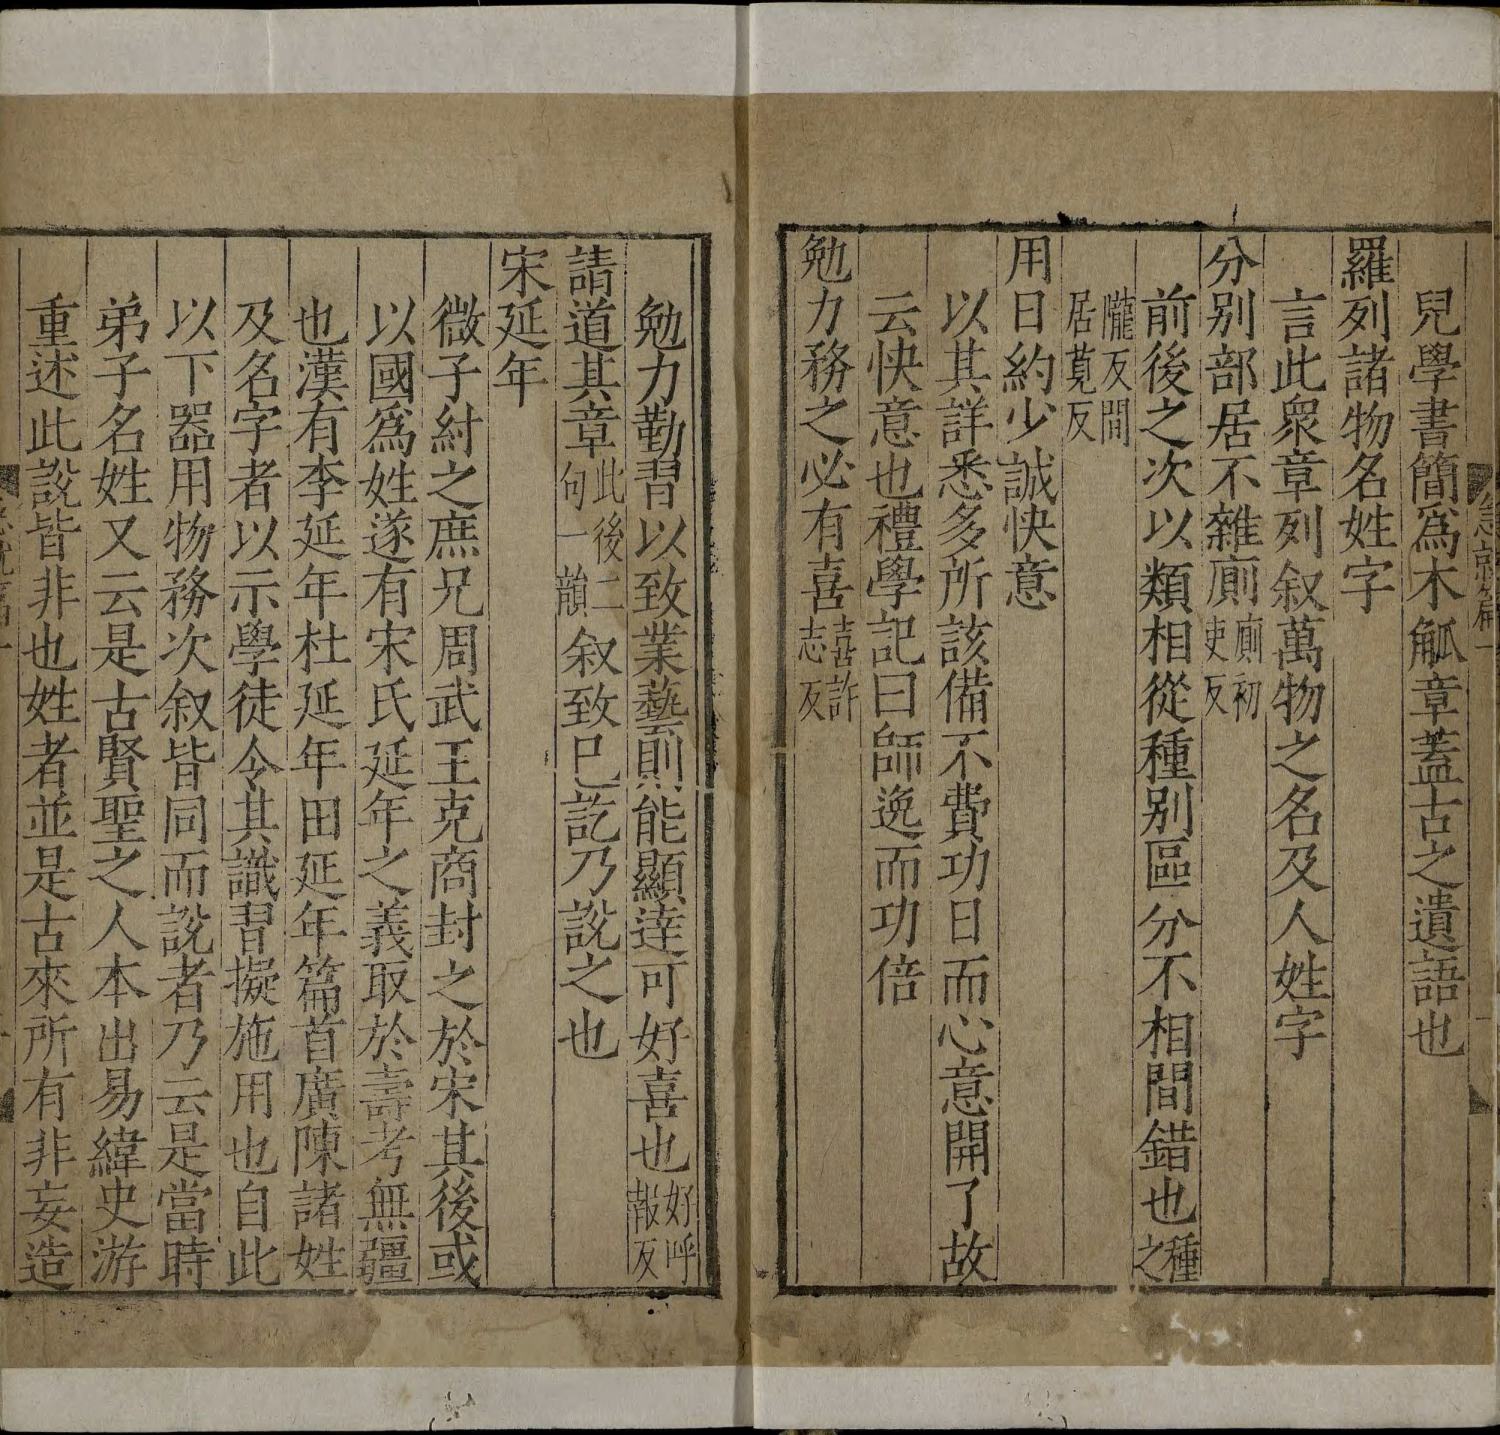 兒學書簡爲木觚章蓋古之遺語也
羅列諸物名姓字
言此衆章列叙萬物之名及人姓字
分别部居不雜廁廁初吏反
前後之次以類相從種别區分不相間錯也種之
隴反間居莧反
用日約少誠快意
以其詳悉多所該備不費功日而心意開了故
云快意也禮學記曰師逸而功倍
勉力務之必有喜喜許志反
勉力勤習以致業藝則能顯達可好喜也好呼報反
請道其章此後二句一韻叙致巳訖乃說之也
宋延年
微子紂之庶兄周武王克商封之於宋其後或
以國爲姓遂有宋氏延年之義取於壽考無疆
也漢有李延年杜延年田延年篇首廣陳諸姓
及名字者以示學徒令其識習擬施用也自此
以下器用物務次叙皆同而說者乃云是當時
弟子名姓又云是古賢聖之人本出易緯史游
重述此說皆非也姓者並是古來所有非妄造